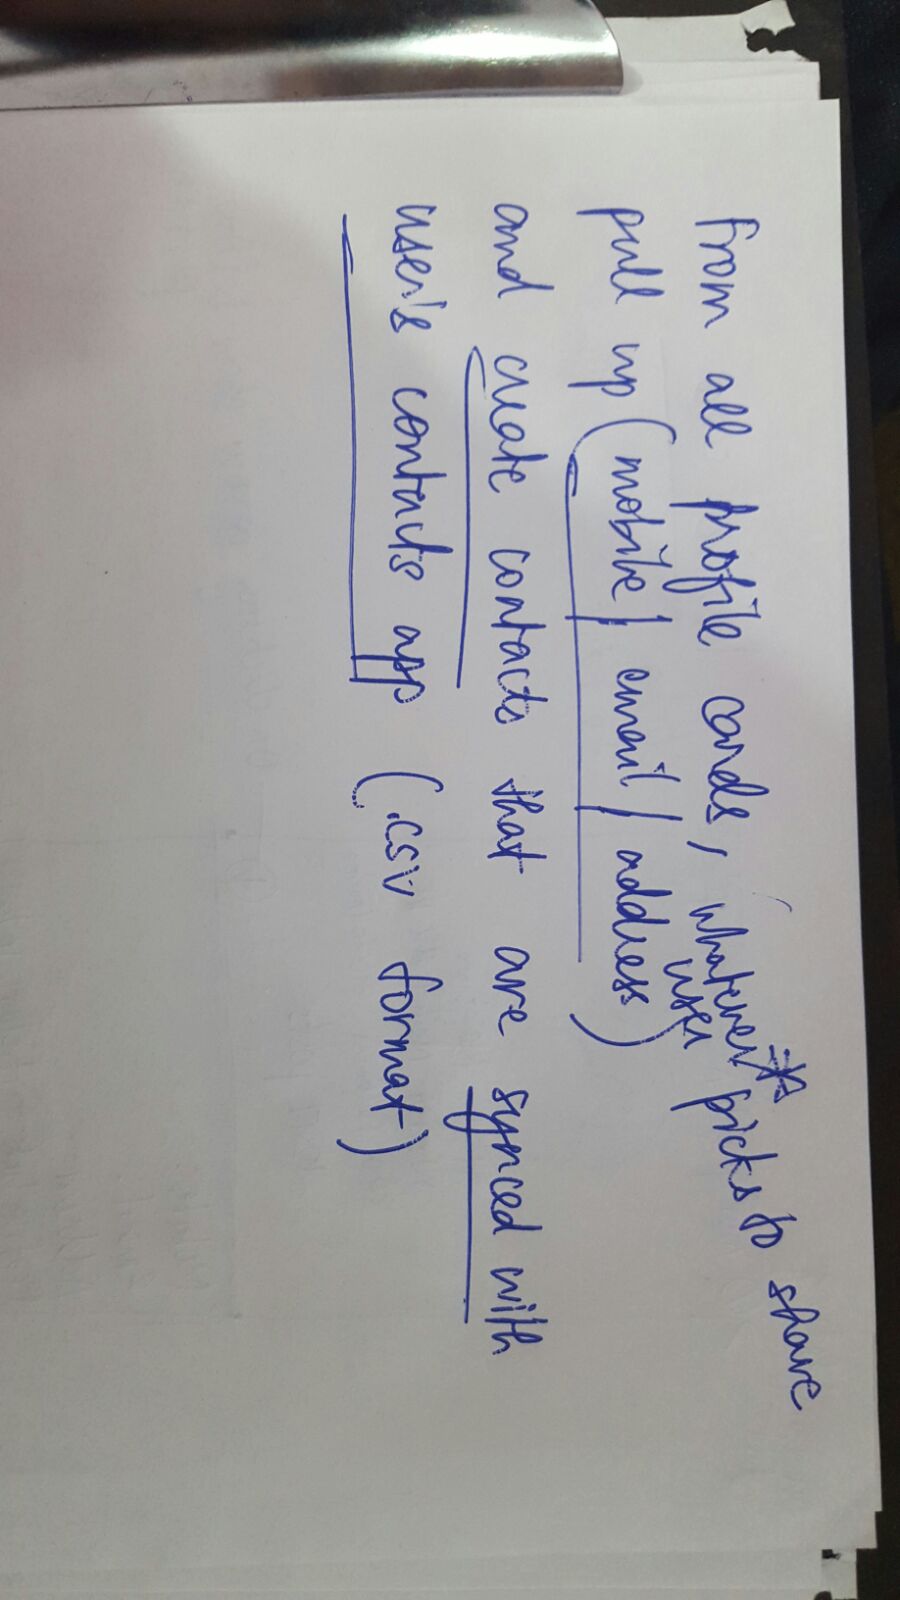 From all profile cards, whatever* user picks to share
pull up (mobile / email / address)
and create contacts that are synced with
user's contacts app (.csv format)